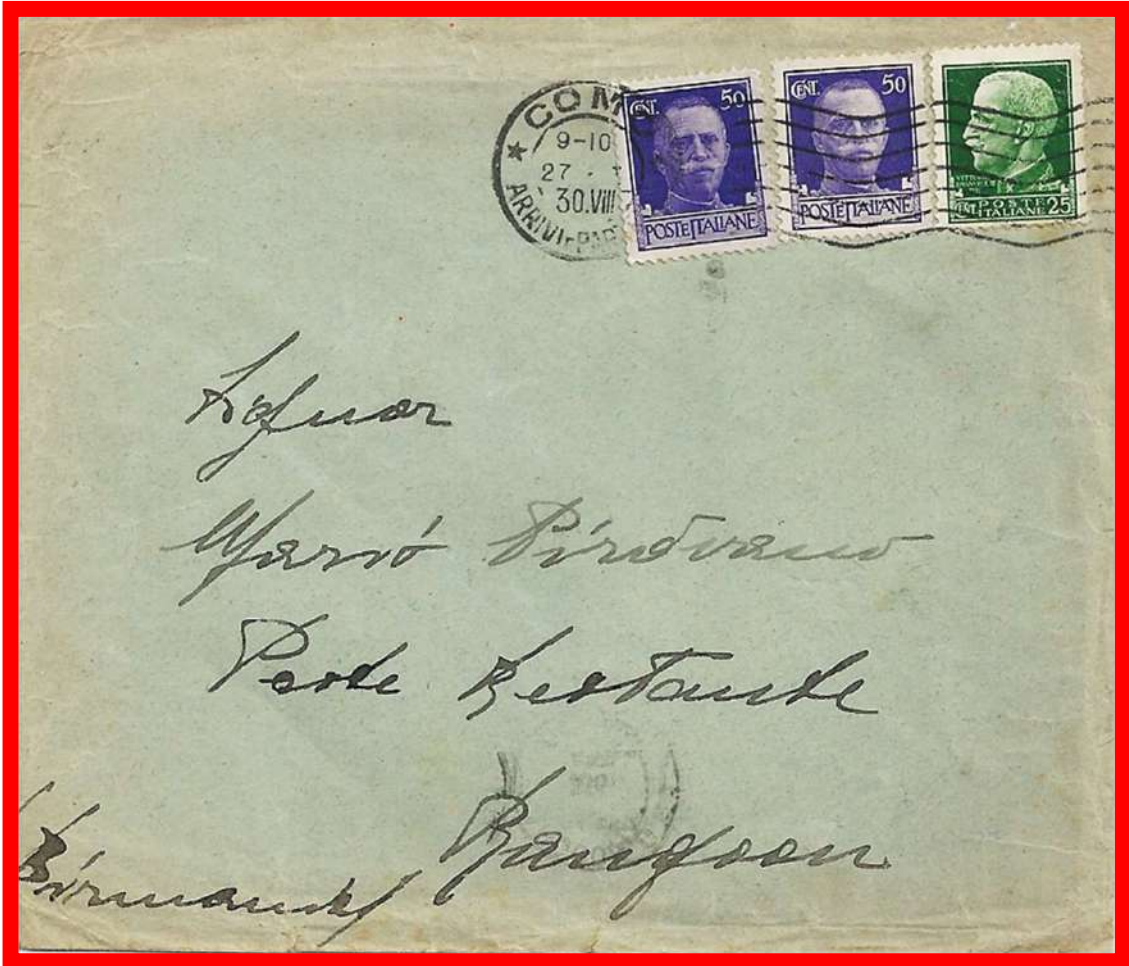 COM
9-10
27 .
30.VIII
ARRIVI-PAR
CENT. 50
POSTE ITALIANE
CENT. 50
POSTE ITALIANE
CENT. POSTE ITALIANE 25
Signor
Mario Pirovano
Poste Restante
Rangoon
(Birmania)